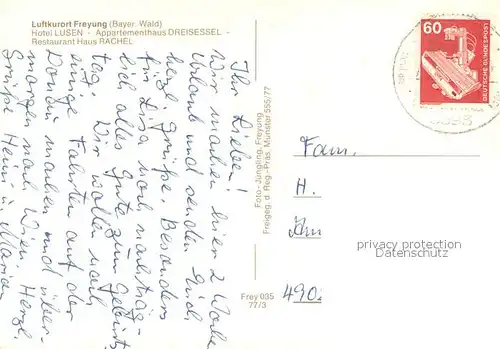 Luftkurort Freyung (Bayer. Wald)
Hotel LUSEN - Appartementhaus DREISESSEL -
Restaurant Haus RACHEL
Ihr Lieben!
Wir machen hier 2 Woche
Urlaub und senden Euch
herzl. Grüße. Besonders
für Lisa noch nachträg-
lich alles Gute zum Geburts
tag. Wir wollen noch
einige Fahrten auf der
Donau machen und über-
morgen nach Wien. Herzl.
Grüße Heini u. Marian
Foto-Jüngling, Freyung
Freigeg. d. Reg.-Präs. Münster 555/77
Frey 035
77/3
60
DEUTSCHE BUNDESPOST
Fam.
H.
490
privacy protection
Datenschutz